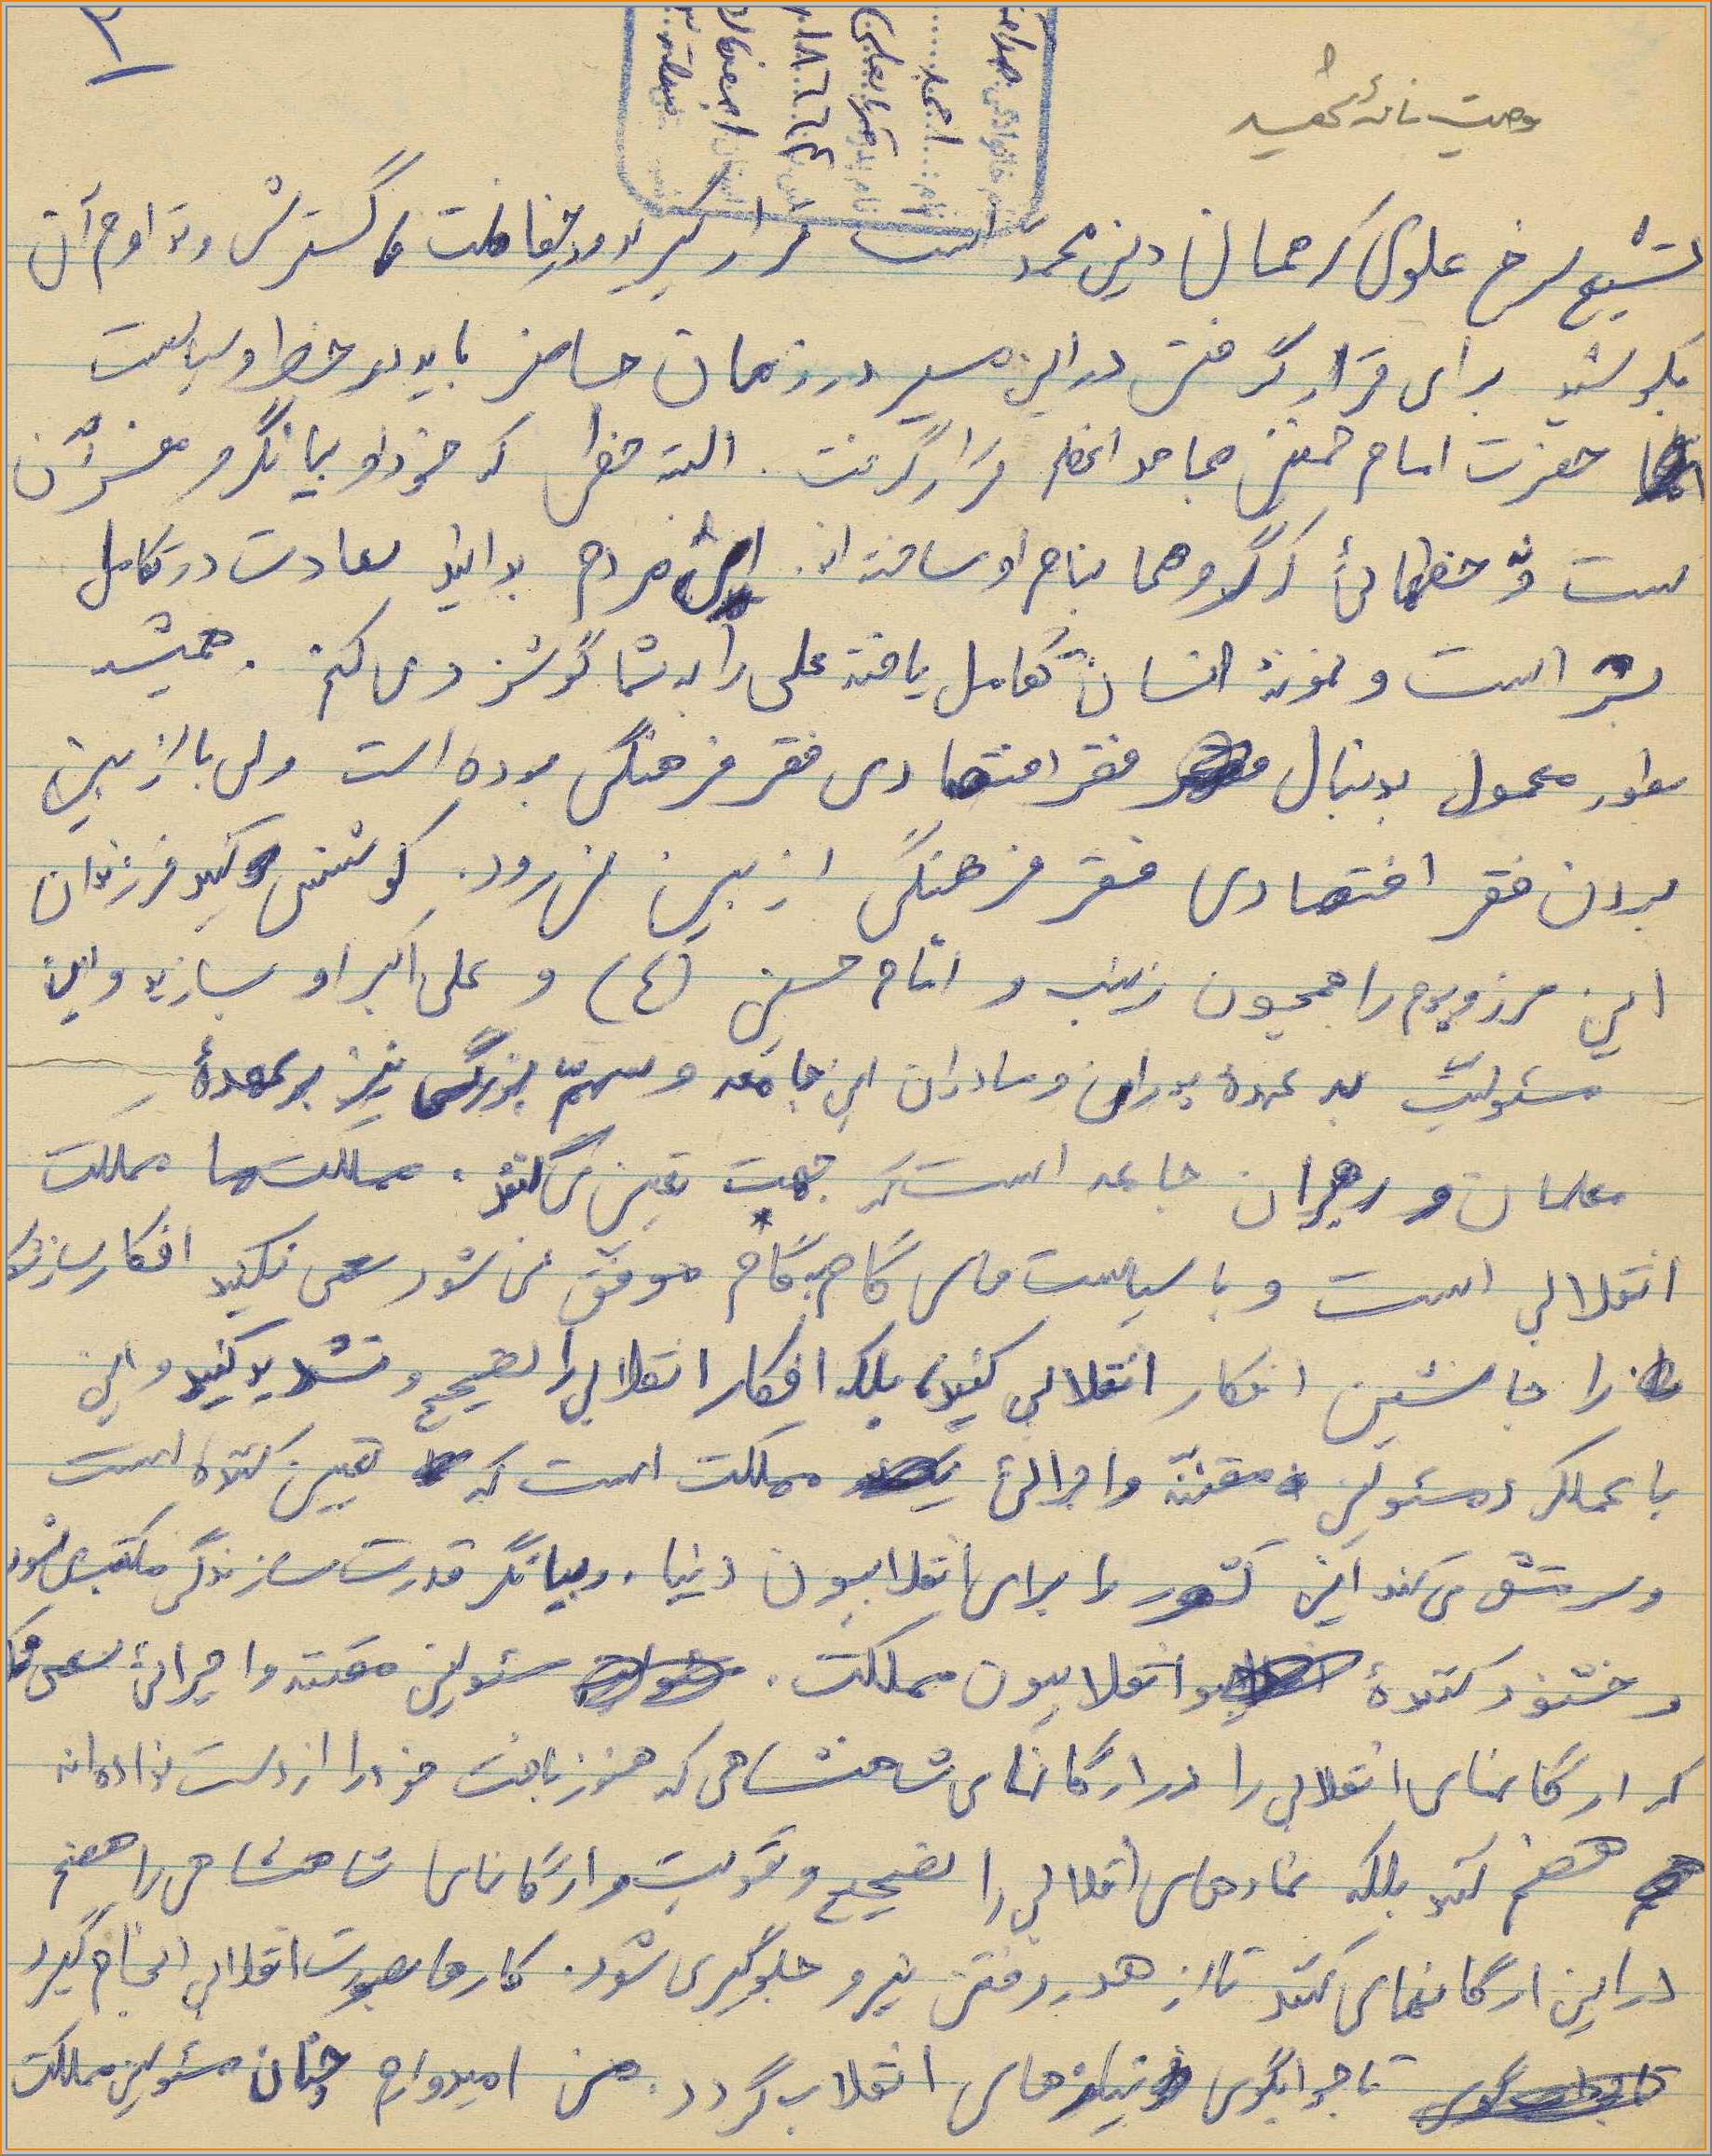 ۲
وصیت نامه شهید
تشیع سرخ علوی که همان دین محمد است قرار گیرید و در حفاظت و گسترش و تداوم آن
بکوشید برای قرار گرفتن در این مسیر در زمان حاضر باید در خط و سیاست
حضرت امام خمینی مجاهد اعظم قرار گرفت. البته خطی که خود او بیانگر و مفسر آن
است و نه خطهائی که گروهها بنام او ساخته‌اند. ای مردم بدانید سعادت در تکامل
بشر است و نمونهٔ انسان تکامل یافته علی را به شما گوشزد می کنم. همیشه
بطور معمول بدنبال فقر اقتصادی فقر فرهنگی بوده است ولی با از بین
بردن فقر اقتصادی فقر فرهنگی از بین نمی رود. کوشش کنید فرزندان
این مرز و بوم را همچون زینب و امام حسین (ع) و علی اکبر او بسازید و این
مسئولیت به عهدهٔ پدران و مادران این جامعه و سهم بزرگی نیز بر عهدهٔ
معلمان و رهبران جامعه است که جهت تعیین می کنند. مملکت ما مملکت
انقلابی است و با سیاست های گام به گام موفق نمی شود سعی نکنید افکار سازشکا
را جانشین افکار انقلابی کنید، بلکه افکار انقلابی را تصحیح و تشدید کنید و این
با عملکرد مسئولین مقننه و اجرائی مملکت است که تعیین کننده است
و سرمشق می کند این کشور را برای انقلابیون دنیا. و بیانگر قدرت سازندگی مکتبش شود
و خشنود کنندهٔ انقلابیون مملکت. مسئولین مقننه و اجرائی سعی
که ارگانهای انقلابی را در ارگانهای شاهنشاهی که هنوز بافت خود را از دست نداده اند
هضم کنند بلکه نهادهای انقلابی را تصحیح و تقویت و ارگانهای شاهنشاهی را هضم
در این ارگانهای کنند تا از هدر رفتن نیرو جلوگیری شود. کارها بصورت انقلابی انجام گیرد
تا جوابگوی نیازهای انقلاب گردد. من امیدوارم چنان مسئولین مملکت